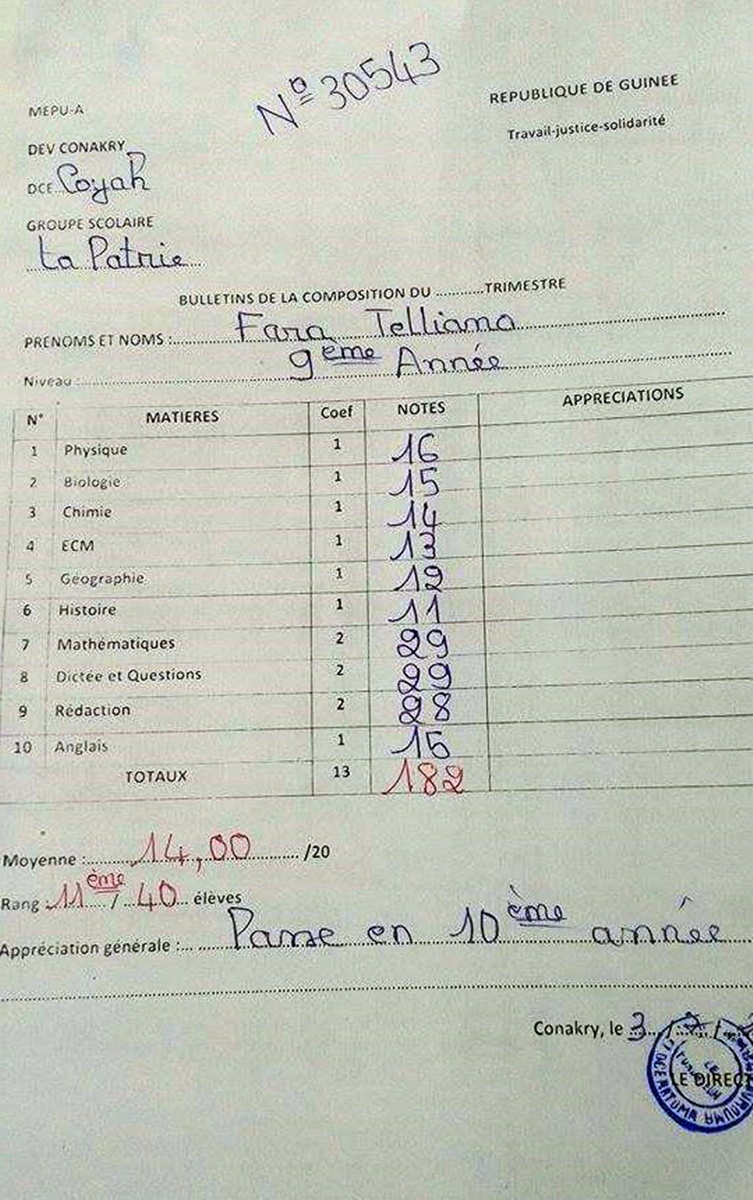 N° 30543
MEPU-A
REPUBLIQUE DE GUINEE
Travail-justice-solidarité
DEV CONAKRY
DCE Coyah
GROUPE SCOLAIRE
La Patrie
BULLETINS DE LA COMPOSITION DU ............TRIMESTRE
PRENOMS ET NOMS : Fara Telliano
Niveau : 9ème Année
N° MATIERES Coef NOTES APPRECIATIONS
1 Physique 1 16
2 Biologie 1 15
3 Chimie 1 14
4 ECM 1 13
5 Géographie 1 12
6 Histoire 1 11
7 Mathématiques 2 29
8 Dictée et Questions 2 29
9 Rédaction 2 28
10 Anglais 1 15
TOTAUX 13 182
Moyenne : 14,00 /20
Rang : 11ème / 40 élèves
Appréciation générale : Passe en 10ème année
Conakry, le 3
LE DIRECT